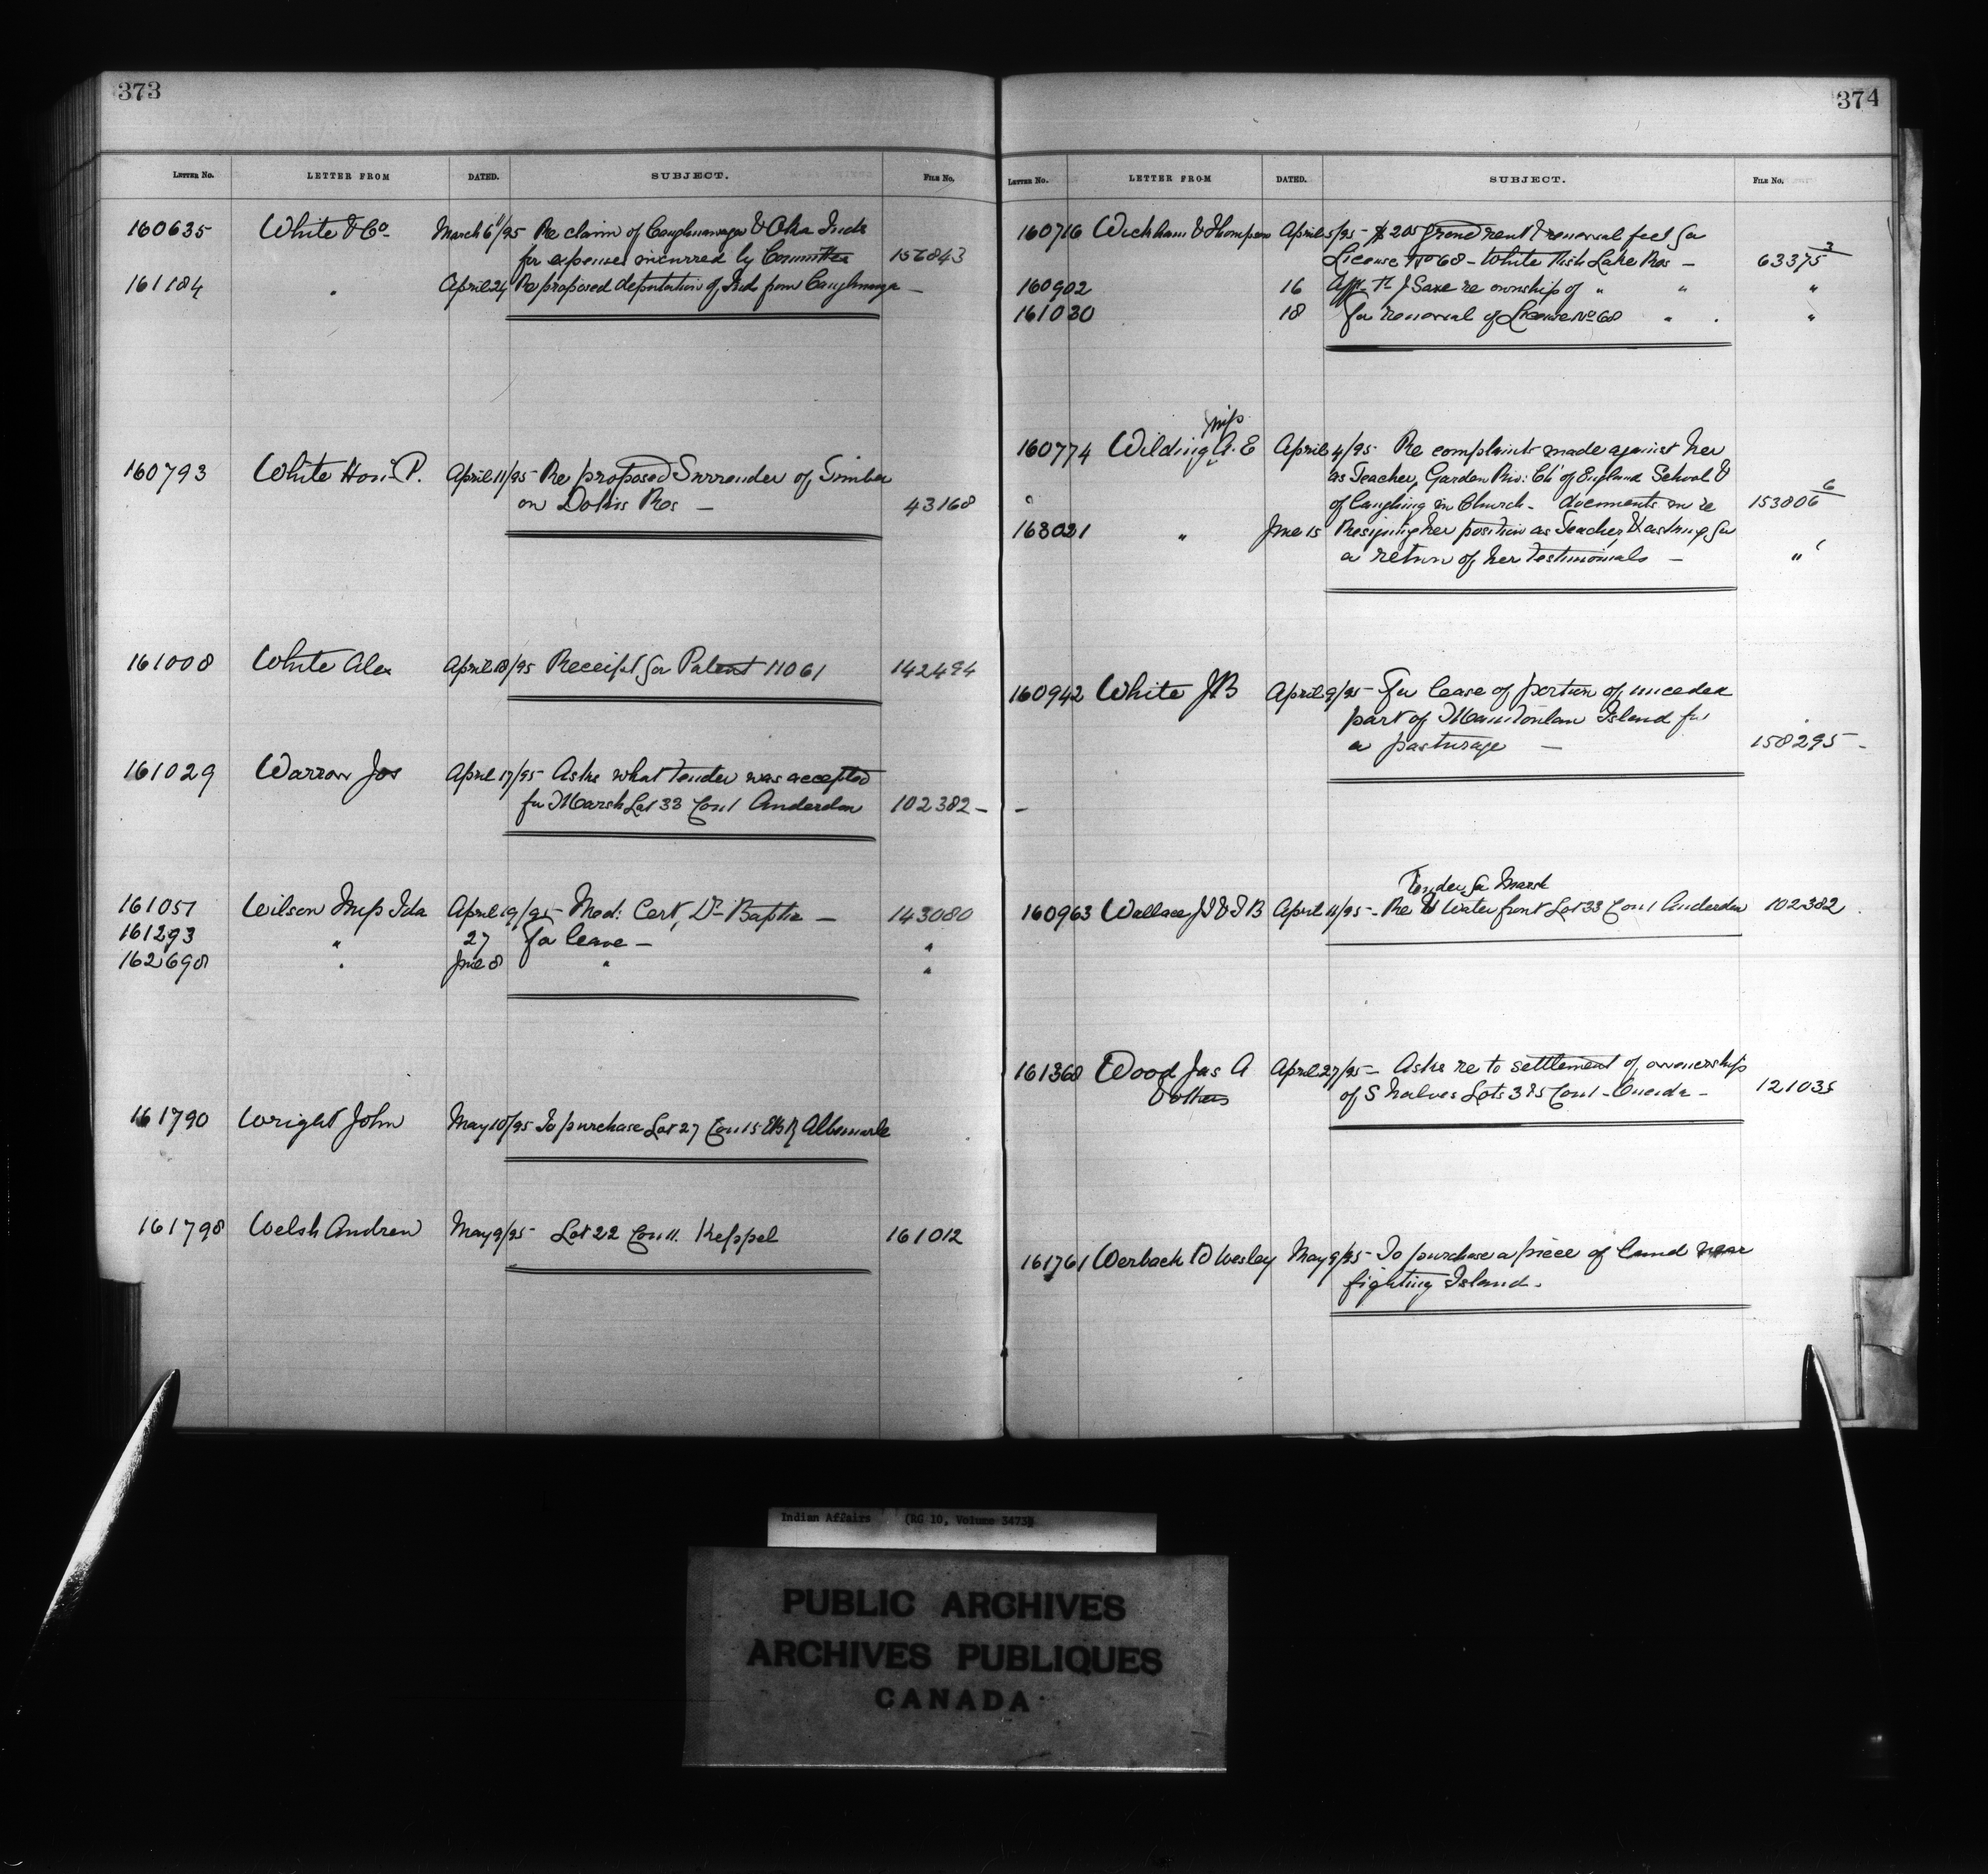 373
LETTER No. LETTER FROM DATED. SUBJECT. FILE No.
160635 White & Co. March 6/95 Re claim of Caughnawaga & Oka Inds
for expenses incurred by Committee 156843
161184 " April 24 Re proposed deputation of Inds from Caughnaga -
160793 White Hon: P. April 11/95 Re proposed Surrender of Timber
on Dokis Res - 43168
161008 White Alex April 18/95 Receipt for Patent 11061 142494
161029 Warrow Jos April 17/95 Asks what tender was accepted
for Marsh Lot 33 Con 1 Anderdon 102382 -
161051 Wilson Miss Ida April 19/95 - Med: Cert, Dr Baptie - 143080
161293 " 27 for leave - "
162698 " June 8 " "
161790 Wright John May 10/95 To purchase Lot 27 Con 15 EBR Albemarle
161798 Welsh Andrew May 9/95 - Lot 22 Con 11. Keppel 161012
374
LETTER No. LETTER FROM DATED. SUBJECT. FILE No.
160716 Wickham & Thompson April 5/95 - $205 ground rent & renewal fees for
License No 68 - White Fish Lake Res - 63375 3
160902 16 Afft. J Saxe re ownship of " " "
161030 18 for renewal of License No 68 " . "
Miss
160774 Wilding A. E April 4/95 - Re complaints made against her
as Teacher, Garden Riv: Ch of England School &
of laughing in Church - documents in re 153806 6
163021 " June 15 Resigning her position as Teacher & asking for
a return of her testimonials - "
160942 White J.B April 9/95 - For lease of portion of unceded
part of Manitoulin Island for
a pasturage - 158295 -
Tender for Marsh
160963 Wallace J.T & T B April 11/95 - Re Water front Lot 33 Con 1 Anderdon 102382
161368 Wood Jas A April 27/95 - Asks re to settlement of ownership
& others of S halves Lots 3 & 5 Con 1 - Oneida - 121035
161761 Werback D Wesley May 9/95 - To purchase a piece of land near
fighting Island.
Indian Affairs (RG 10, Volume 3473)
PUBLIC ARCHIVES
ARCHIVES PUBLIQUES
CANADA